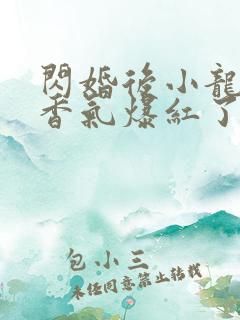 閃婚後小龍
香氣爆紅了
包小三
未經同意禁止轉載